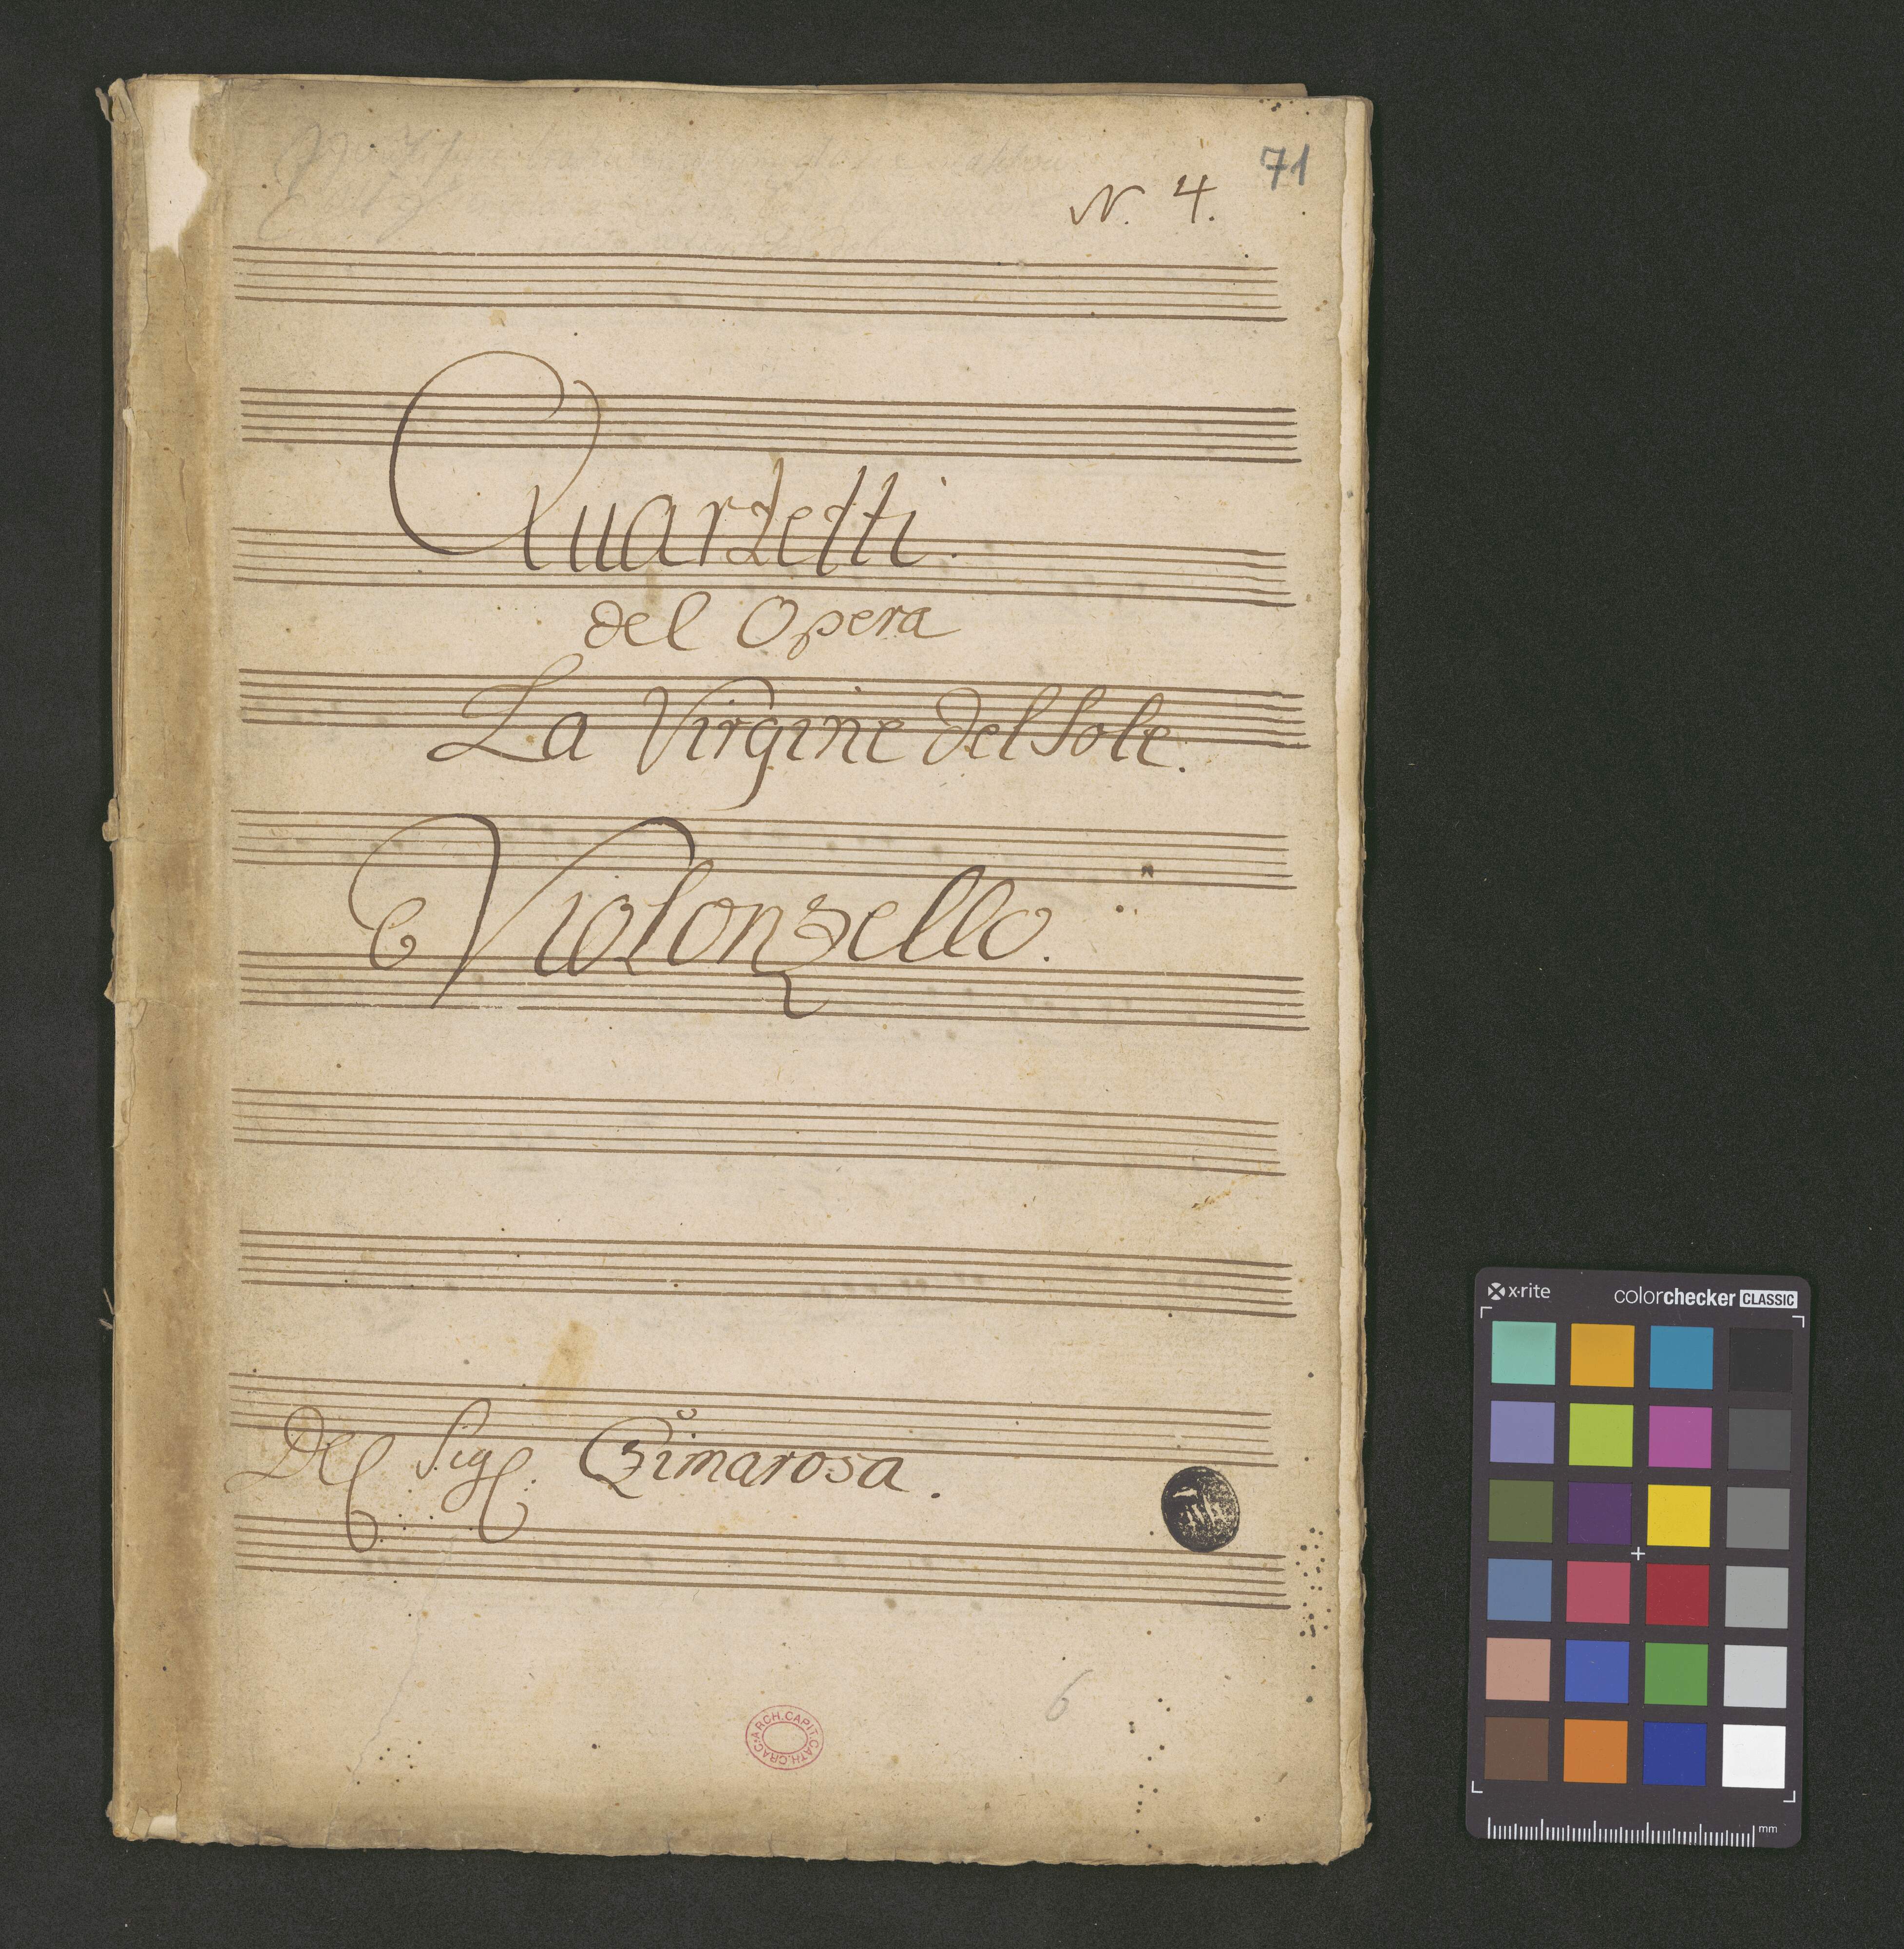 71
N. 4.
Quartetti.
del Opera
La Virgine del Sole.
Violonzello.
Del Sigl. Czimarosa.
6
ARCH.CAPIT.CATH.CRAC.
x·rite
colorchecker CLASSIC
mm